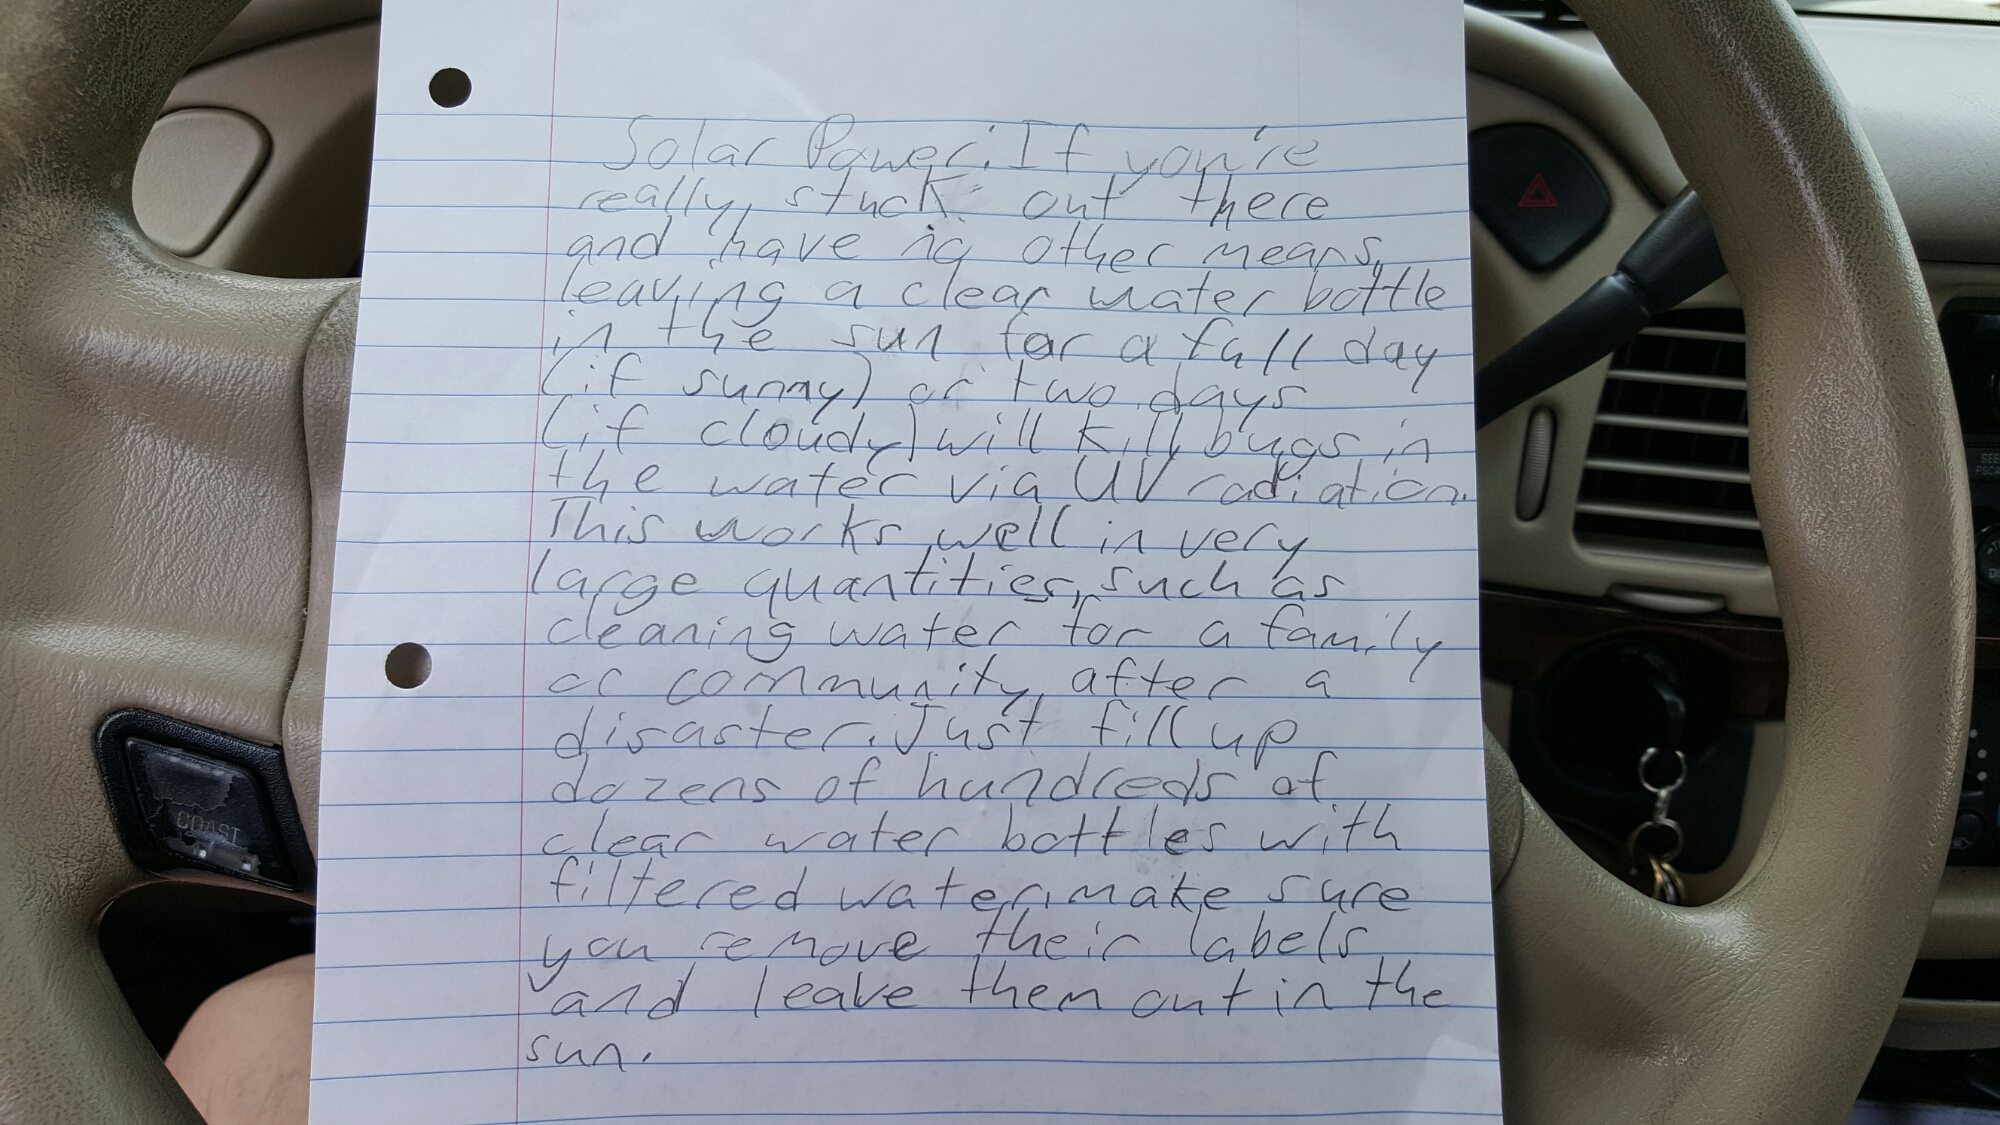 Solar Power. If you're
really, stuck out there
and have no other means,
leaving a clear water bottle
in the sun for a full day
(if sunny) or two days
(if cloudy) will kill bugs in
the water via UV radiation.
This works well in very
large quantities, such as
cleaning water for a family
or community, after a
disaster. Just fill up
dozens of hundreds of
clear water bottles with
filtered water, make sure
you remove their labels
and leave them out in the
sun.
COAST